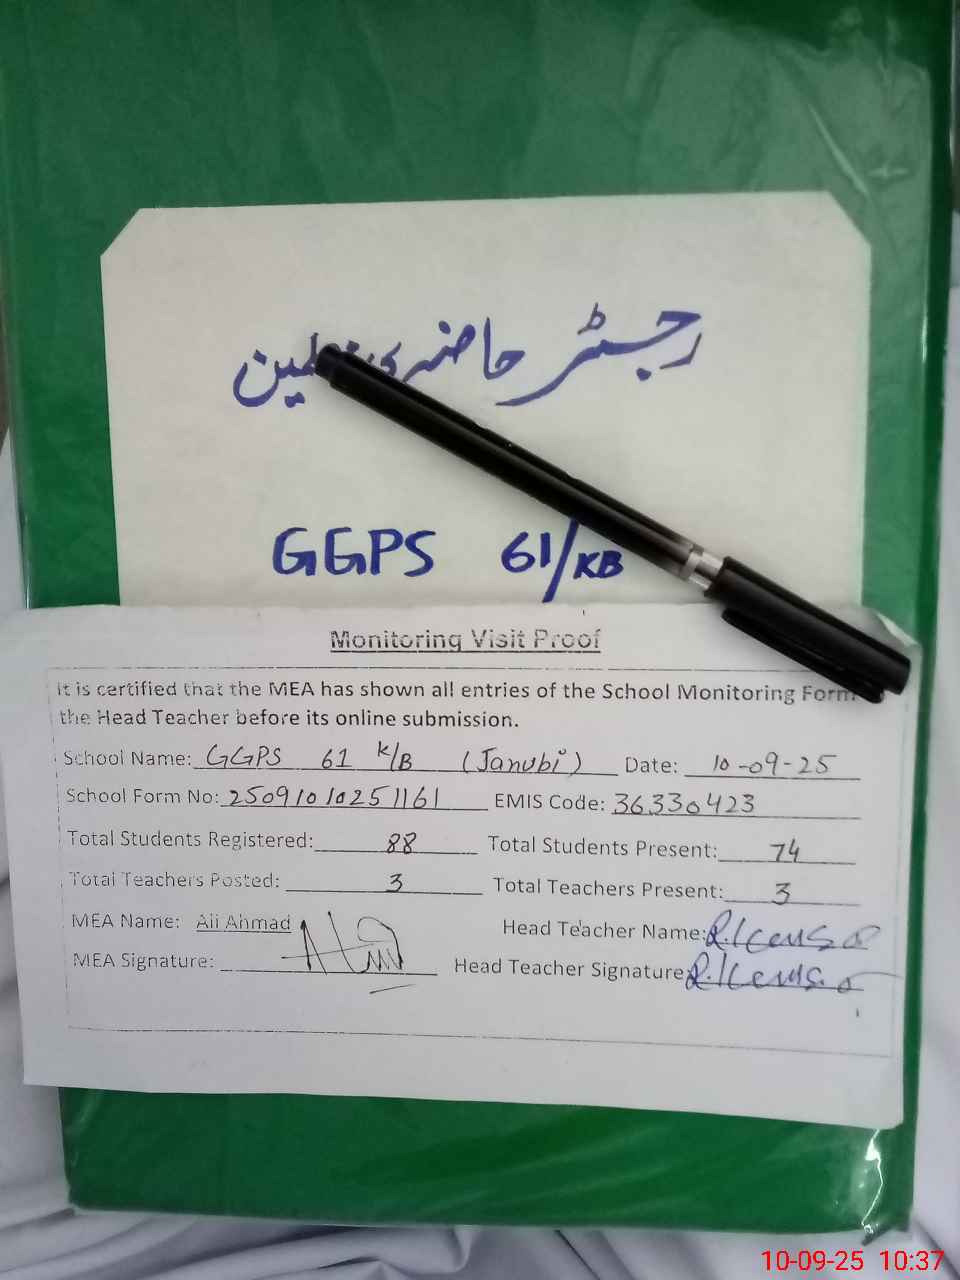 رجسٹر حاضری
GGPS 61/KB
Monitoring Visit Proof
It is certified that the MEA has shown all entries of the School Monitoring Form
the Head Teacher before its online submission.
School Name: GGPS 61 K/B (Janubi) Date: 10-09-25
School Form No: 25091010251161 EMIS Code: 36330423
Total Students Registered: 88 Total Students Present: 74
Total Teachers Posted: 3 Total Teachers Present: 3
MEA Name: Ali Ahmad Head Teacher Name:
MEA Signature: Head Teacher Signature:
10-09-25 10:37